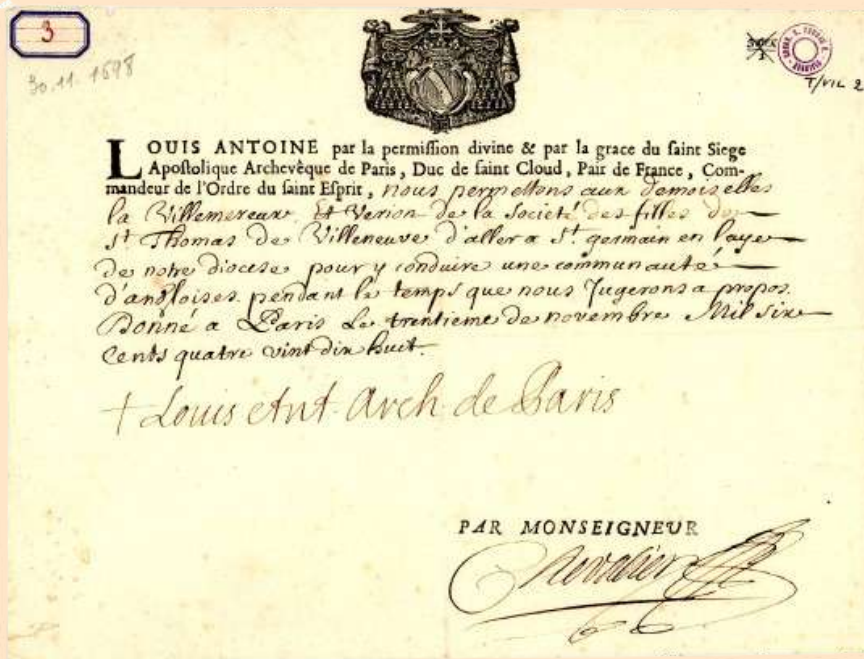 3
30.11.1698
T/VIL 2
LOUIS ANTOINE par la permiſſion divine & par la grace du ſaint Siege
Apoſtolique Archevêque de Paris, Duc de ſaint Cloud, Pair de France, Com-
mandeur de l'Ordre du ſaint Eſprit, nous permettons aux demoiselles
la Villemereux Et Verion de la societé des filles de
St Thomas de Villeneuve d'aller a St. germain en laye
de notre diocese pour y conduire une communauté
d'angloises pendant le temps que nous Jugerons a propos.
Donné a Paris Le trentieme de novembre Mil six
Cents quatre vint dix huit.
+ Louis Ant. Arch. de Paris
PAR MONSEIGNEUR
Chevalier